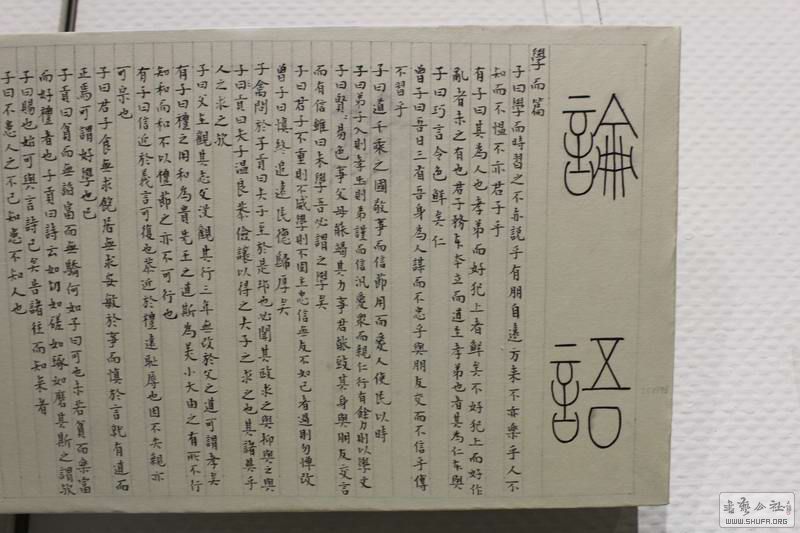 論語
學而篇
子曰學而時習之不亦説乎有朋自遠方来不亦樂乎人不
知而不愠不亦君子乎
有子曰其為人也孝弟而好犯上者鮮矣不好犯上而好作
亂者未之有也君子務本本立而道生孝弟也者其為仁本與
子曰巧言令色鮮矣仁
曾子曰吾日三省吾身為人謀而不忠乎與朋友交而不信乎傳
不習乎
子曰道千乘之國敬事而信節用而愛人使民以時
子曰弟子入則孝出則弟謹而信汎愛衆而親仁行有餘力則以學文
子曰賢〻易色事父母能竭其力事君能致其身與朋友交言
而有信雖曰未學吾必謂之學矣
子曰君子不重則不威學則不固主忠信無友不如己者過則勿憚改
曾子曰慎終追遠民德歸厚矣
子禽問於子貢曰夫子至於是邦也必聞其政求之與抑與之與
子曰貢曰夫子温良恭儉讓以得之夫子之求之也其諸異乎
人之求之歟
子曰父在觀其志父没觀其行三年無改於父之道可謂孝矣
有子曰禮之用和為貴先王之道斯為美小大由之有所不行
知和而和不以禮節之亦不可行也
有子曰信近於義言可復也恭近於禮遠恥辱也因不失親亦
可宗也
子曰君子食無求飽居無求安敏於事而慎於言就有道而
正焉可謂好學也已
子貢曰貧而無諂富而無驕何如子曰可也未若貧而樂富
而好禮者也子貢曰詩云如切如磋如琢如磨其斯之謂歟
子曰賜也始可與言詩已矣告諸往而知来者
子曰不患人之不己知患不知人也
書藝公社
WWW.SHUFA.ORG